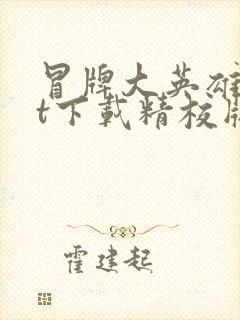 冒牌大英雄
t下载精校版
霍建起